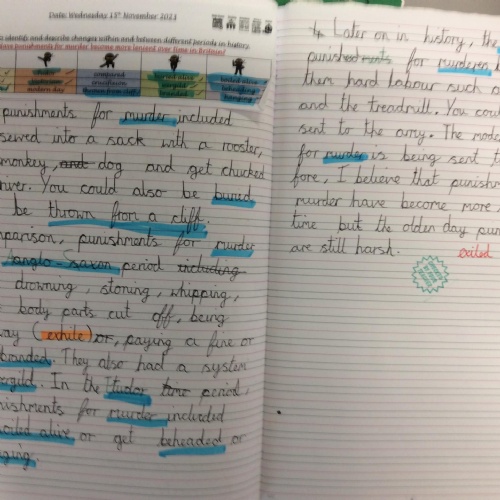 Date: Wednesday 15th November 2023
to identify and describe changes within and between different periods in history.
punishments for murder become more lenient over time in Britain?
compared
modern day
conclusion
punishments for murder included
sewed into a sack with a rooster,
monkey, and dog and get chucked
river. You could also be buried
be thrown from a cliff.
mparison, punishments for murder
anglo-saxon period including
drowning, stoning, whipping,
body parts cut off, being
way (exhile) or, paying a fine or
branded. They also had a system
ergild. In the tudor time period,
nishments for murder included
oiled alive or get beheaded or
nging.
4 Later on in history, the
punishments for murderers
them hard labour such a
and the treadmill. You coul
sent to the army. The mod
for murder is being sent t
fore, I believe that punish
murder have become more
time but the olden day pun
are still harsh.
exiled